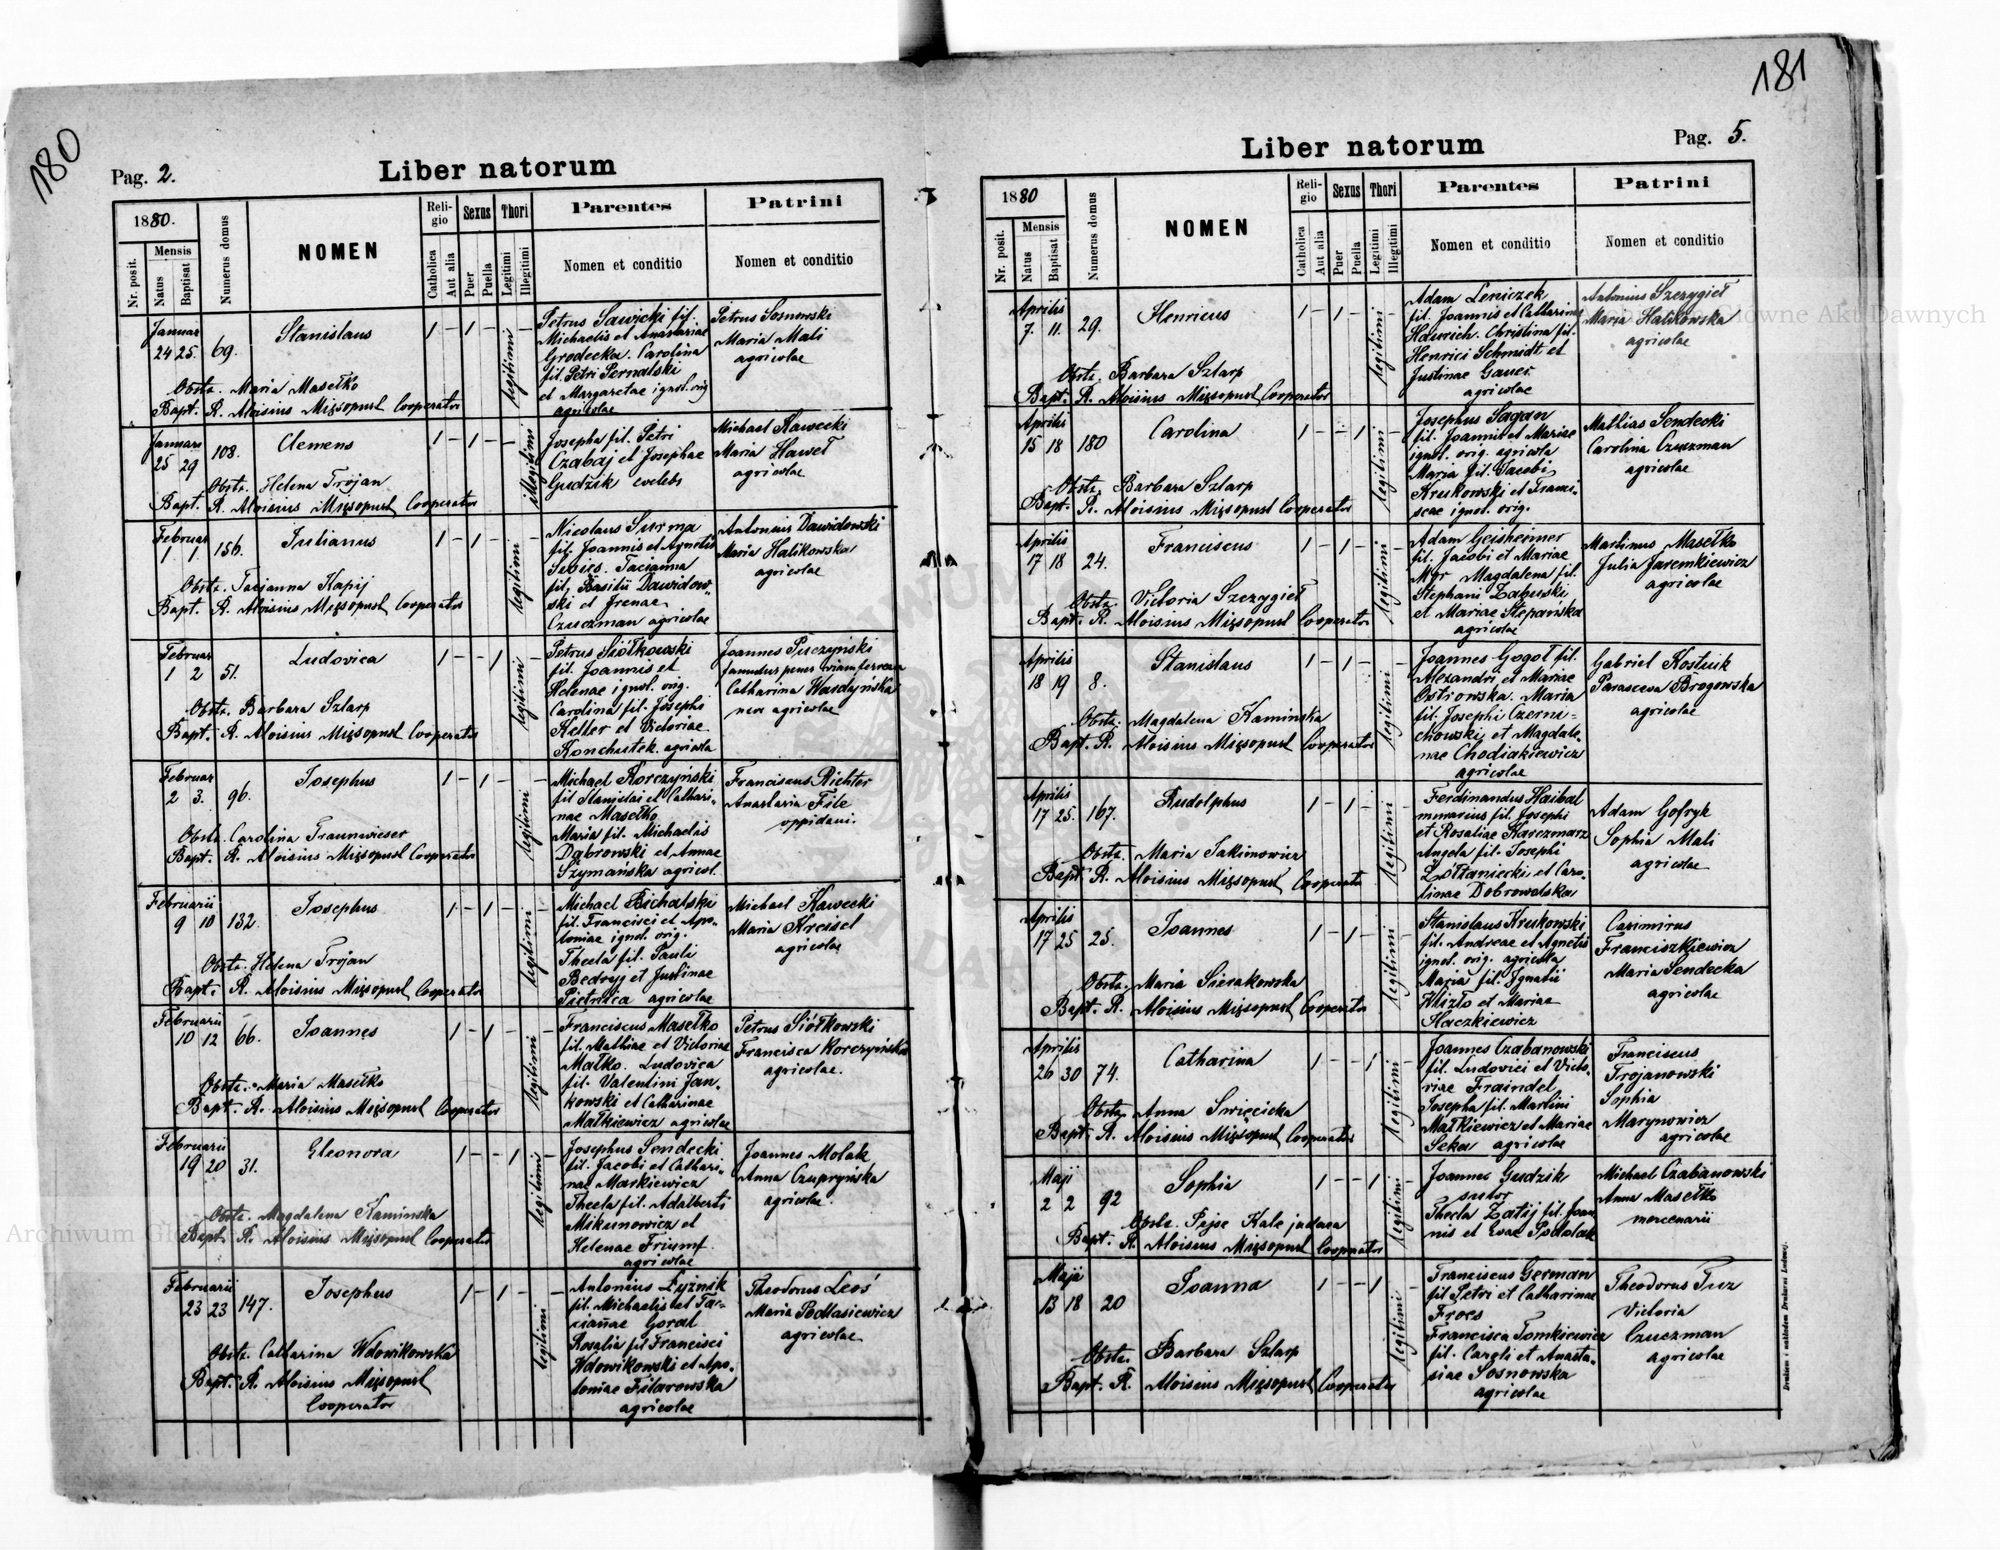 180
Pag. 2.
Liber natorum
1880.
Mensis
Nr. posit.
Natus
Baptisat
Numerus domus
NOMEN
Reli-
gio
Catholica
Aut alia
Sexus
Puer
Puella
Thori
Legitimi
Illegitimi
Parentes
Nomen et conditio
Patrini
Nomen et conditio
Januar
24 25. 69. Stanislaus 1 – 1 – –
legitimi
Obstz. Maria Masełko
Bapt. R. Aloisius Mizsopust Cooperator
Petrus Sawicki fil.
Michaelis et Anastasiae
Grodecka. Carolina
fil. Petri Pernalski
et Margaretae ignot. orig
agricolae
Petrus Sosnowski
Maria Mali
agricolae
Januari
25 29 108. Clemens 1 – 1 – –
illegitimi
Obstz. Helena Trojan
Bapt. R. Aloisius Mizsopust Cooperator
Josepha fil. Petri
Czabaj et Josephae
Gudzik coelebs
Michael Kawecki
Maria Haweł
agricolae
Februar
1 1 156. Julianus 1 – 1 – –
legitimi
Obstz. Tacjanna Kapij
Bapt. R. Aloisius Mizsopust Cooperator
Nicolaus Surma
fil. Joannis et Agnetis
Tacianna
fil. Basilii Dawidow-
ski et Irenae
Czuczman agricolae
Antonius Dawidowski
Maria Halikowska
agricolae
Februar
1 2 51. Ludovica 1 – – 1 –
legitimi
Obstz. Barbara Szlarp
Bapt. R. Aloisius Mizsopust Cooperator
Petrus Siółkowski
fil. Joannis et
Helenae ignot. orig.
Carolina fil. Josephi
Keller et Victoriae
Konchutek agricola
Joannes Pierczyński
famulus penes viam ferream
Catharina Hardyńska
agricolae
Februar
2 3. 96. Josephus 1 – 1 – –
legitimi
Obstz. Carolina Traunwieser
Bapt. R. Aloisius Mizsopust Cooperator
Michael Korczyński
fil Stanislai et Cathari-
nae Masełko
Maria fil. Michaelis
Dąbrowski et Annae
Szymańska agricol.
Franciscus Richter
Anastasia File
oppidani.
Februarii
9 10 132. Josephus 1 – 1 – –
legitimi
Obstz. Helena Trojan
Bapt. R. Aloisius Mizsopust Cooperator
Michael Bichalski
fil. Francisci et Apo-
loniae ignot. orig.
Thecla fil. Pauli
Bedryj et Justinae
Pietnica agricolae
Michael Kawecki
Maria Kreisel
agricolae
Februarii
10 12 66. Joannes 1 – 1 – –
legitimi
Obstz. Maria Masełko
Bapt. R. Aloisius Mizsopust Cooperator
Franciscus Masełko
fil. Mathiae et Victoriae
Małko. Ludovica
fil. Valentini Jan-
kowski et Catharinae
Małkiewicz agricolae
Petrus Siółkowski
Francisca Korczyńska
agricolae.
Februarii
19 20 31. Eleonora 1 – – 1 –
legitimi
Obstz. Magdalena Kamińska
Bapt. R. Aloisius Mizsopust Cooperator
Josephus Sendecki
fil. Jacobi et Cathari-
nae Markiewicz
Thecla fil. Adalberti
Mikunowicz et
Helenae Triumf.
agricolae
Joannes Molak
Anna Czupryńska
agricolae.
Februarii
23 23 147. Josephus 1 – 1 – –
legitimi
Obstz. Catharina Wdowikowska
Bapt. R. Aloisius Mizsopust
Cooperator
Antonius Łyżnik
fil. Michaelis et Ta-
ciannae Goral
Rosalia fil Francisci
Wdowikowski et Apo-
loniae Filarowska
agricolae
Theodorus Leoś
Maria Podlasiewicz
agricolae
181
Liber natorum
Pag. 5.
1880
Mensis
Nr. posit.
Natus
Baptisat
Numerus domus
NOMEN
Reli-
gio
Catholica
Aut alia
Sexus
Puer
Puella
Thori
Legitimi
Illegitimi
Parentes
Nomen et conditio
Patrini
Nomen et conditio
Aprilis
7. 11. 29. Henricus 1 – 1 – –
legitimi
Obstz. Barbara Szlarp
Bapt. R. Aloisius Mizsopust Cooperator
Adam Leniczek
fil. Joannis et Catharina
Heinrich. Christina fil.
Henrici Schmidt et
Justinae Gauer
agricolae
Antonius Szczygieł
Maria Halikowska
agricolae
Aprilis
15 18 180 Carolina 1 – – 1 –
legitimi
Obstz. Barbara Szlarp
Bapt. R. Aloisius Mizsopust Cooperator
Josephus Sagan
fil. Joannis et Mariae
ignot. orig. agricola
Maria fil. Jacobi
Krukowski et Franci-
scae ignot. orig.
Mathias Sendecki
Carolina Czuczman
agricolae
Aprilis
17 18 24. Franciscus 1 – 1 – –
legitimi
Obstz. Victoria Szczygieł
Bapt. R. Aloisius Mizsopust Cooperator
Adam Geisheimer
fil. Jacobi et Mariae
Magdalena fil.
Stephani Zaburski
et Mariae Stepańska
agricolae
Martinus Masełko
Julia Jaremkiewicz
agricolae
Aprilis
18 19 8. Stanislaus 1 – 1 – –
legitimi
Obstz. Magdalena Kamińska
Bapt. R. Aloisius Mizsopust Cooperator
Joannes Gogoł fil.
Alexandri et Mariae
Ostrowska. Maria
fil. Josephi Czerni-
chowski et Magdale-
nae Chodiakiewicz
agricolae
Gabriel Kostiuk
Parasceva Brogowska
agricolae
Aprilis
17 25. 167. Rudolphus 1 – 1 – –
legitimi
Obstz. Maria Jakimowicz
Bapt. R. Aloisius Mizsopust Cooperator
Ferdinandus Haibal
murarius fil. Josephi
et Rosaliae Karczmarz
Angela fil. Josephi
Żółtaniecki et Caro-
linae Dobrowolska
Adam Gofryk
Sophia Mali
agricolae
Aprilis
17 25 25. Joannes 1 – 1 – –
legitimi
Obstz. Maria Sierakowska
Bapt. R. Aloisius Mizsopust Cooperator
Stanislaus Krukowski
fil. Andreae et Agnetis
ignot. orig. agricola
Maria fil. Ignatii
Klizło et Mariae
Haczkiewicz
Casimirus
Franciszkiewicz
Maria Sendecka
agricolae
Aprilis
26 30 74. Catharina 1 – – 1 –
legitimi
Obstz. Anna Swięcicka
Bapt. R. Aloisius Mizsopust Cooperator
Joannes Czabanowski
fil. Ludovici et Victo-
riae Fraindel
Josepha fil. Martini
Małkiewicz et Mariae
Seka agricolae
Franciscus
Trojanowski
Sophia
Marynowicz
agricolae
Maji
2 2 92 Sophia 1 – – 1 –
legitimi
Obstz. Pejse Kalc judaea
Bapt. R. Aloisius Mizsopust Cooperator
Joannes Gudzik
sutor
Thecla Zatij fil. Joan
nis et Evae Podolak
Michael Czabanowski
Anna Masełko
mercenarii
Maji
13 18 20 Joanna 1 – – 1 –
legitimi
Obstz. Barbara Szlarp
Bapt. R. Aloisius Mizsopust Cooperator
Franciscus German
fil Petri et Catharinae
Froes
Francisca Tomkiewicz
fil. Caroli et Anasta-
siae Sosnowska
agricolae
Theodorus Tuz
Victoria
Czuczman
agricolae
Drukiem i nakładem Drukarni Ludowej.
Archiwum Główne Akt Dawnych